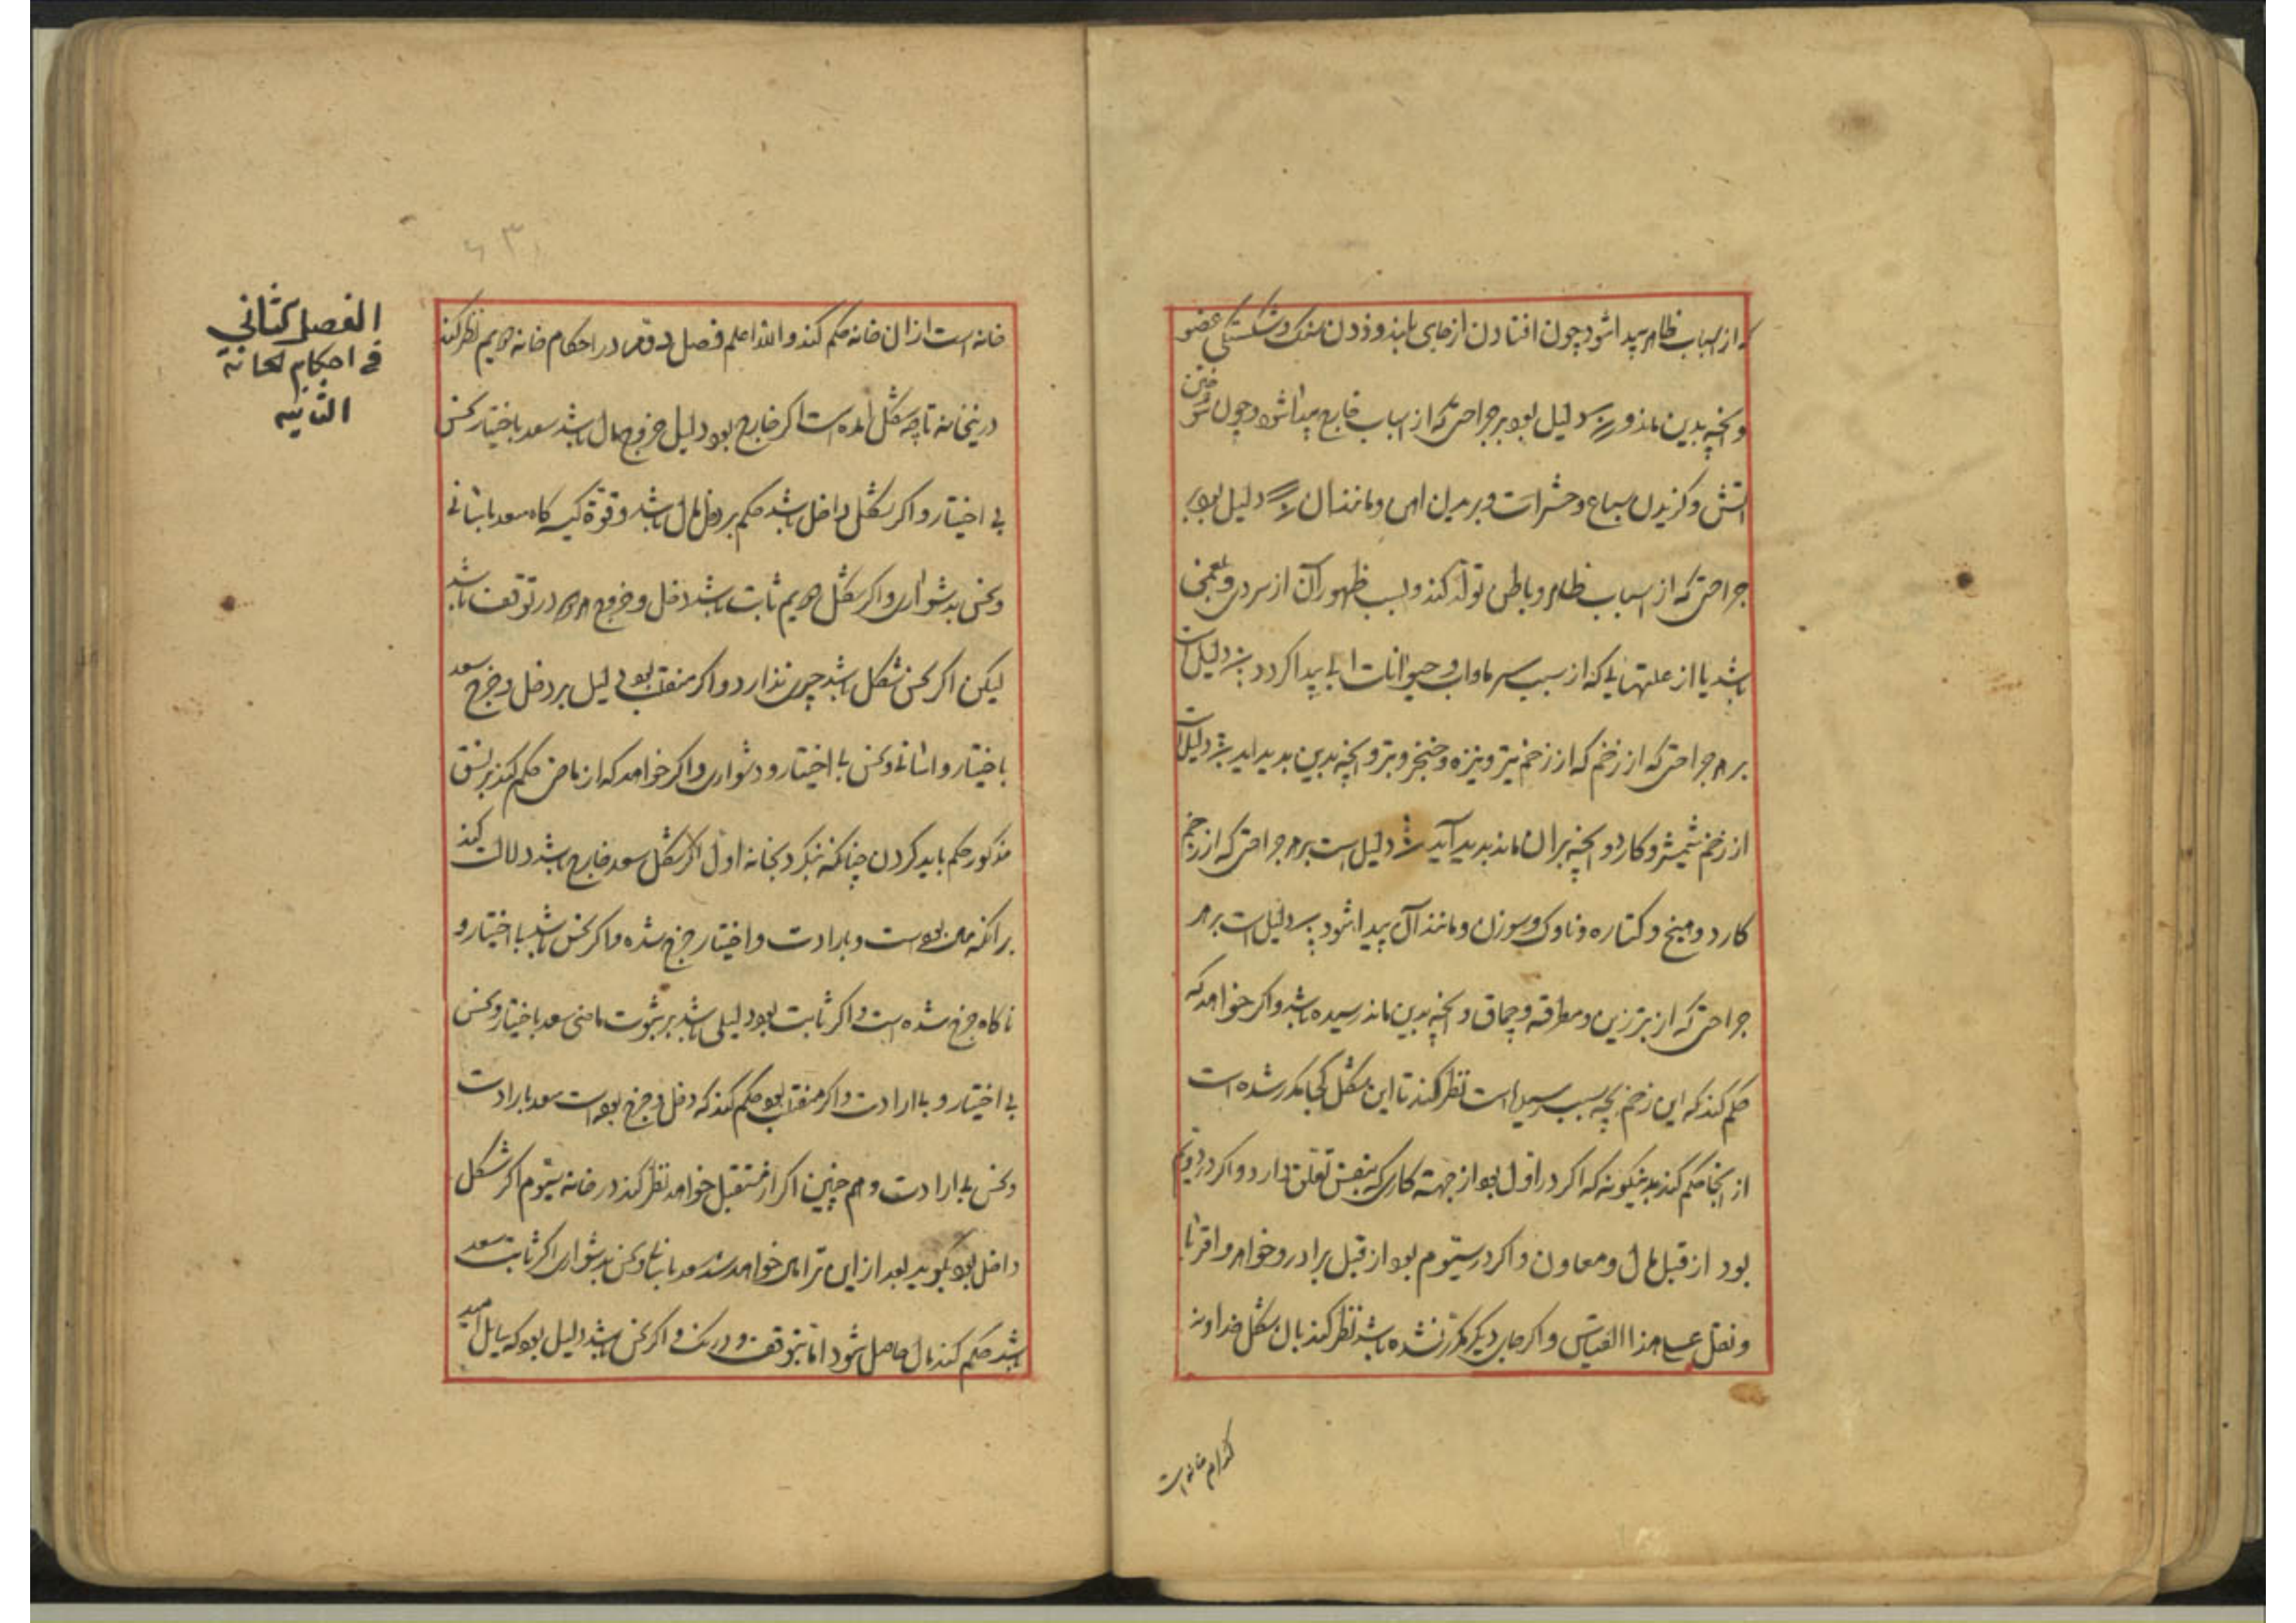 که از اسباب ظاهر پیدا شود چون افتادن از جای بلند و زدن سنک و شکستکی عضو
و آنچه بدین ماند و دلیل بود بر جراحتی که از اسباب خارج پیدا شود چون سوختن
آتش و کزیدن سباع و حشرات و بریدن آهن و مانند آن دلیل بود بر
جراحتی که از اسباب ظاهر و باطن تولد کند و سبب ظهور آن از سردی و بلغمی
باشد یا از علتهایی که از سبب سرما و آب و حیوانات آبی پیدا کردد دلیل است
بر هر جراحتی که از زخم که از زخم تیر و نیزه و خنجر و تبر و آنچه بدین پدید آید دلیل است
از زخم شمشیر و کارد و آنچه بر آن ماند پدید آید دلیل است بر هر جراحتی که از زخم
کارد و میخ و کتاره و ناوک و سوزن و مانند آن پیدا شود دلیل است بر هر
جراحتی که از تبرزین و مطرقه و چماق و آنچه بدین ماند رسیده باشد و اکر خواهد که
حکم کند که این زخم بچه سبب رسیده است نظر کند تا این شکل کجا مکرر شده است
از آنجا حکم کند بدینکونه که اکر در اول بود از جهة کاری که بنفس تعلق دارد و اکر در دویم
بود از قبل مال و معاون و اکر در سیوم بود از قبل برادر و خواهر و اقربا
و نقل علی هذا القیاس و اکر جای دیکر مکرر نشده باشد نظر کند بآن شکل خداوند
کدام خانه است
الفصل الثانی
فی احکام الخانة
الثانیه
خانه است از آن خانه حکم کند والله اعلم فصل دوم در احکام خانه دویم نظر کند
درینخانه تا چه شکل آمده است اکر خارج بود دلیل خروج مال باشد سعد باختیار نحس
بی اختیار و اکر شکل داخل باشد حکم بر دخل مال باشد و قوة کیسه کاه سعد بآسانی
و نحس بدشواری و اکر شکل دویم ثابت باشد دخل و خروج هر دو در توقف باشد
لیکن اکر نحس شکل باشد چیزی ندارد و اکر منقلب بود دلیل بر دخل و خرج سعد
باختیار و آسانی و نحس بی اختیار و دشواری و اکر خواهد که از ماضی حکم کند بر نسق
مذکور حکم باید کردن چنانکه بنکرد بخانه اول اکر شکل سعد خارج باشد دلالت کند
برآنکه مال بوده است و بارادت و اختیار خرج شده و اکر نحس باشد بی اختیار و
ناکاه خرج شده است و اکر ثابت بود دلیلی باشد بر ثبوت ماضی سعد باختیار و نحس
بی اختیار و بی ارادت و اکر منقلب بود حکم کند که دخل و خرج بوده است سعد بارادت
و نحس بی ارادت و هم چنین اکر از مستقبل خواهد نظر کند در خانه سیوم اکر شکل
داخل بود بکوید بعد ازین ترا مال خواهد شد سعد بآسانی و نحس بدشواری اکر ثابت سعد
باشد حکم کند مال حاصل شود اما بتوقف و درنک و اکر نحس باشد دلیل بود که سایل امید